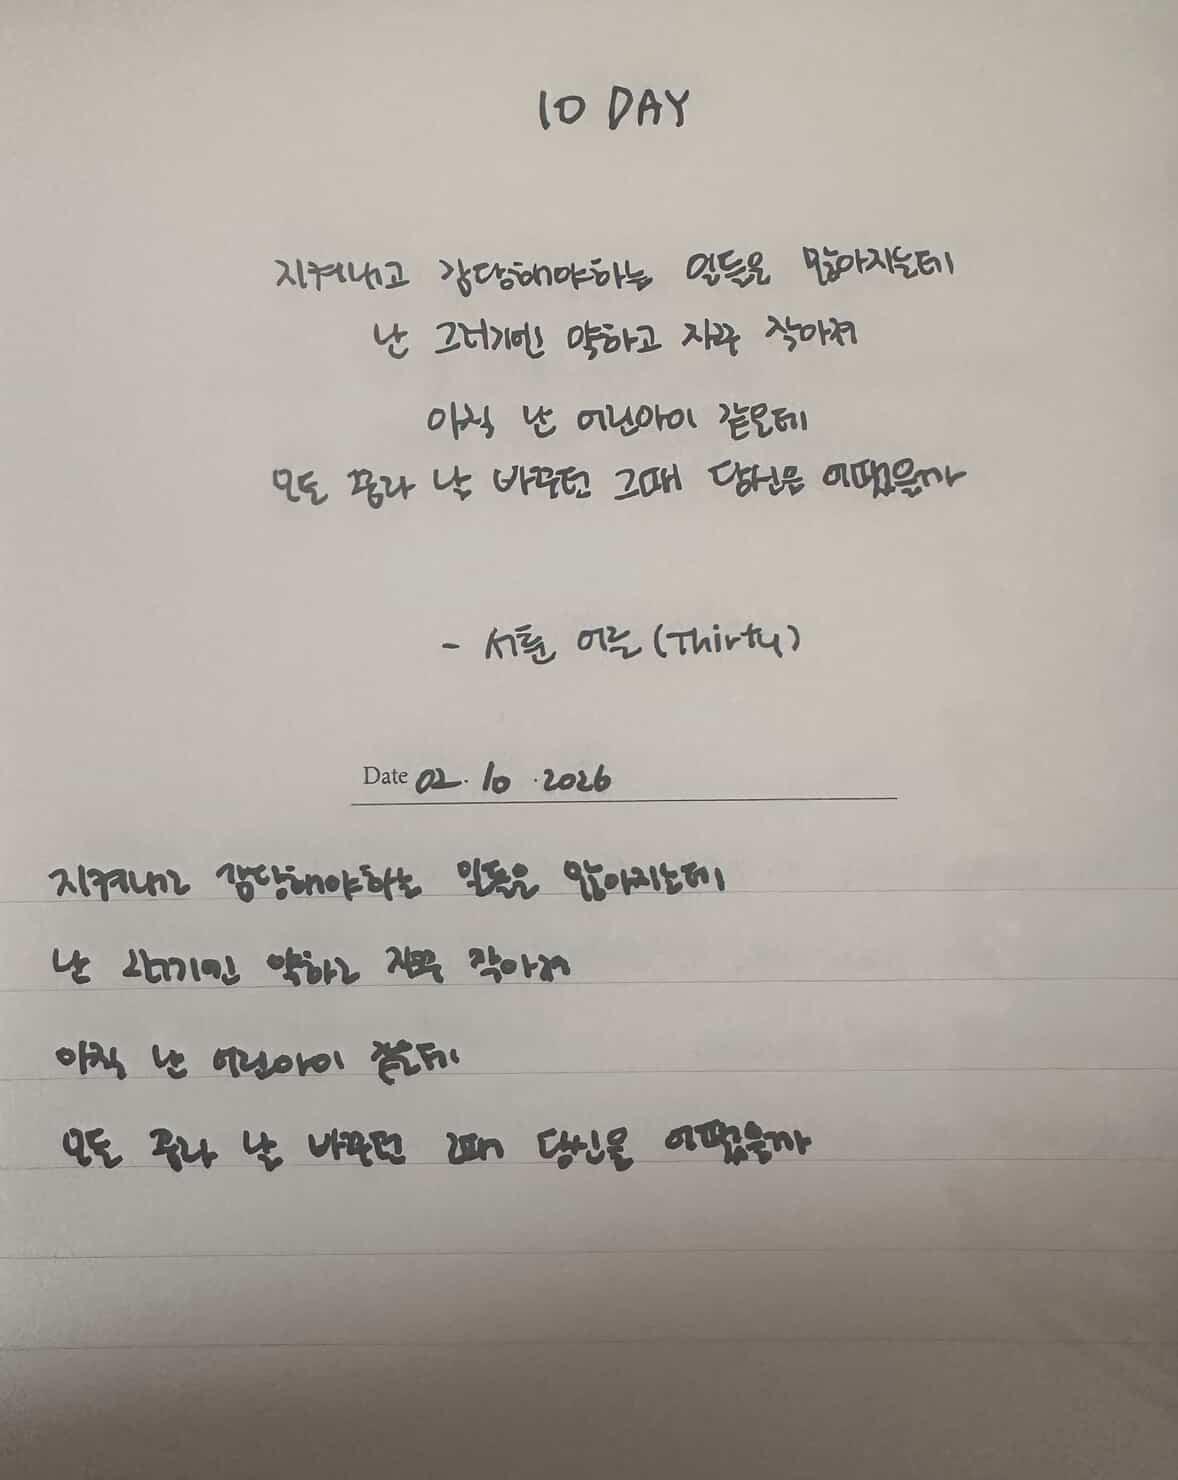 10 DAY
지켜내고 감당해야하는 일들은 많아지는데
난 그러기엔 약하고 자꾸 작아져
아직 난 어린아이 같은데
모든 꿈과 날 바꾸던 그때 당신은 어땠을까
- 서툰 어른 (Thirty)
Date 02. 10 .2026
지켜내고 감당해야하는 일들은 많아지는데
난 그러기엔 약하고 자꾸 작아져
아직 난 어린아이 같은데
모든 꿈과 날 바꾸던 그때 당신은 어땠을까